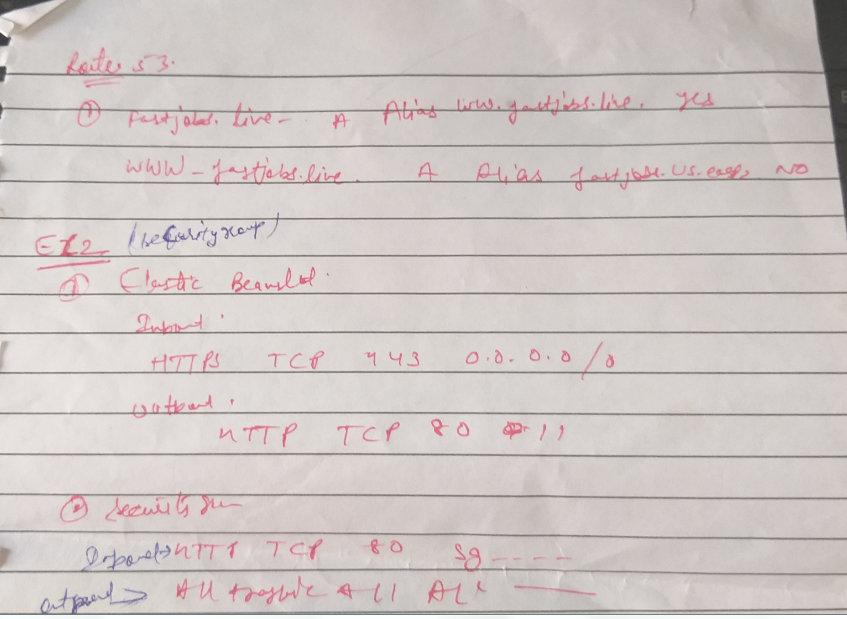 Route 53.
① Fastjobs. live - A Alias www.fastjobs.live. yes
WWW - fastjobs.live. A Alias fastjobs.us.eas NO
EC2 (security group)
① Elastic Beanstal.
Inbound.
HTTPS TCP 443 0.0.0.0/0
outbound.
HTTP TCP 80 - 11
② Security
Inbound → HTTP TCP 80 sg ----
outbound → All traffic All ALL ——